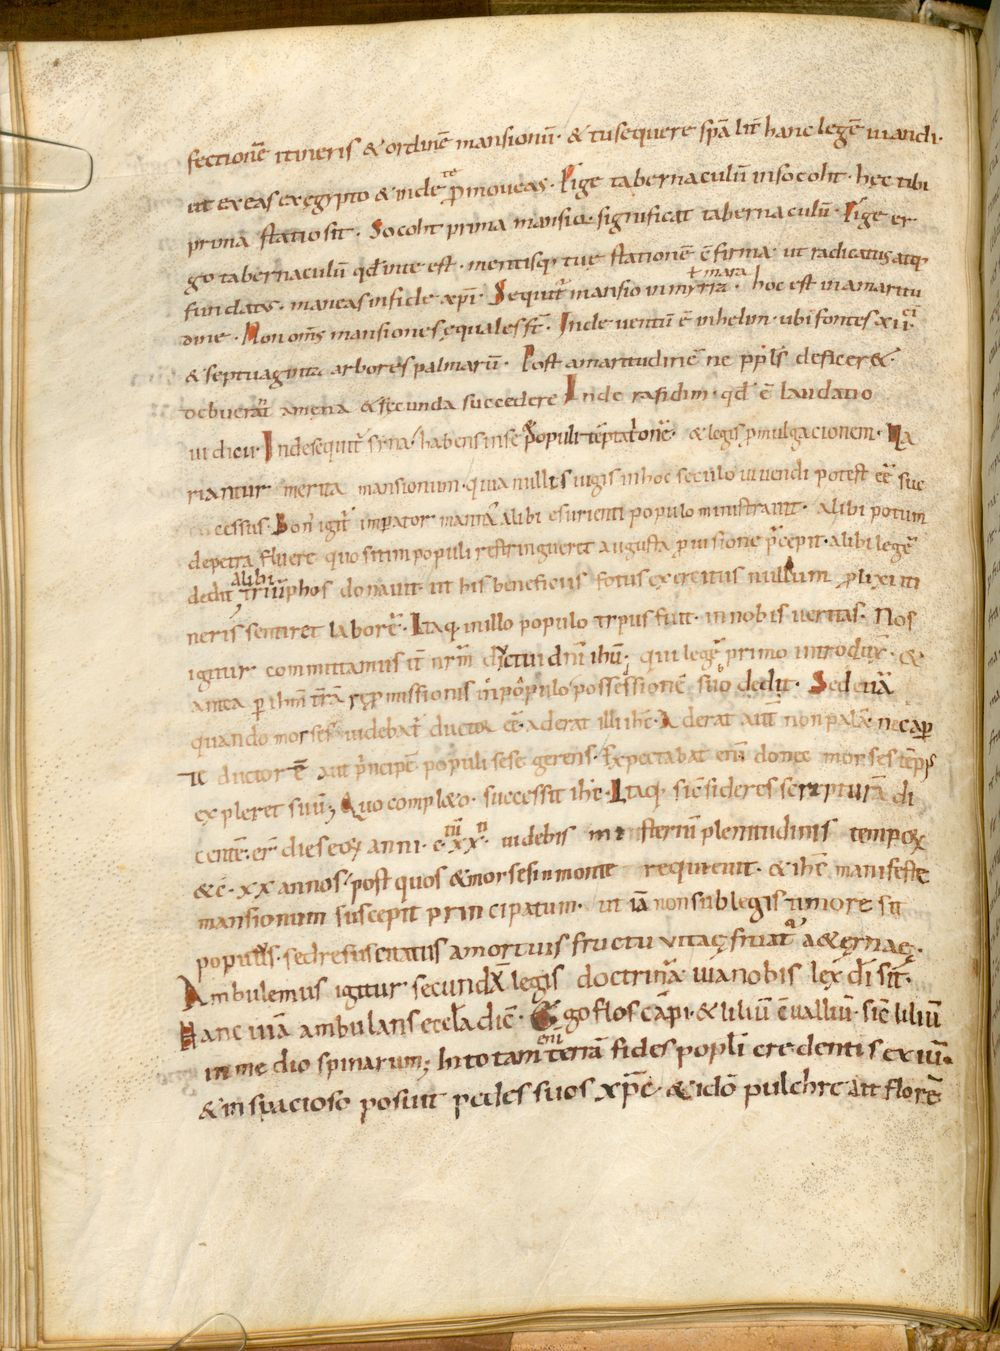 fectionē itineris & ordinē mansionū· & tu sequere sp̄alit̄ hanc legē uiandi·
ut exeas ex egypto & inde te p̄moueas· Fige tabernaculū insocoht· hęc tibi
prima statio sit· Socoht prima mansio· significat tabernaculū· Fige er
go tabernaculū qd̄ iue est· mentisq; tue stationē ē firma ut radicatus atq;
fundatus· maneas in fide xp̄i· Sequit̄ mansio in myrra· mara hoc est in amaritu
dine· Non om̄s mansiones equales st̄· Inde uentū ē in helim· ubi fontes xii·ci
& septuaginta arbores palmarū· Post amaritudinē ne pp̄ls deficer&·
debuerat̄ amena & secunda succedere Inde rafidim· qd̄ ē laudatio
iudicii· Inde sequit̄ syna· habens in se populi tēptationē· & legis p̄mulgacionem· Ua
riantur merita mansionum· quia nullis iugis in hoc seculo uiuendi potest eē suc
cessus· Bon' igit̄ imperator mannā alibi esurienti populo ministrauit· alibi potum
de petra fluere quo sitim populi restringueret augusta p̄uisione p̄cepit· alibi legē
dedit alibi triūphos donauit ut his beneficiis fotus exercitus nullum plixi iti
neris sentiret laborē· Itaq; in illo populo tipus fuit· in nobis ueritas· Nos
igitur committamus it̄ nr̄m dn̄m ihū; qui legē primo introdux̄· &
antea p̄ ihm̄ t̄rā rep̄missionis in populo possessionē suo dedit· Sed etiā
quando morses uidebat̄ ductor eē· aderat illi ihc̄· Aderat aut̄ non palā· nec ap̄
te ductorē aut p̄ncipē populi sese gerens· Expectabat eni donec morses tēp̄s
expleret suū; Quo compl&o· successit ihc̄· Itaq; si c̄sideres scripturā di
centē· er̄ dies eoꝝ anni· c· xx· tū ti uidebis misteriū plenitudinis tempoꝝ
& c̄· xx annos· post quos & morses in monte requieuit· & ihc̄ manifeste
mansionum suscepit principatum· ut iā non sub legis timore sit
populus· sed resuscitatus a mortuis fructu vitaę fruat̄ a&ęrnaę·
Ambulemus igitur secundā legis doctrinā uia nobis lex dī sit·
Hanc uiā ambulans eccl̄a diē· Ego flos cāpi· & liliū c̄ualliū· sic̄ liliū
in medio spinarum; In totam eni terrā fides popl̄i credentis exiit·
& in spacioso posuit pedes suos xp̄c̄ & idō pulchre ait florē